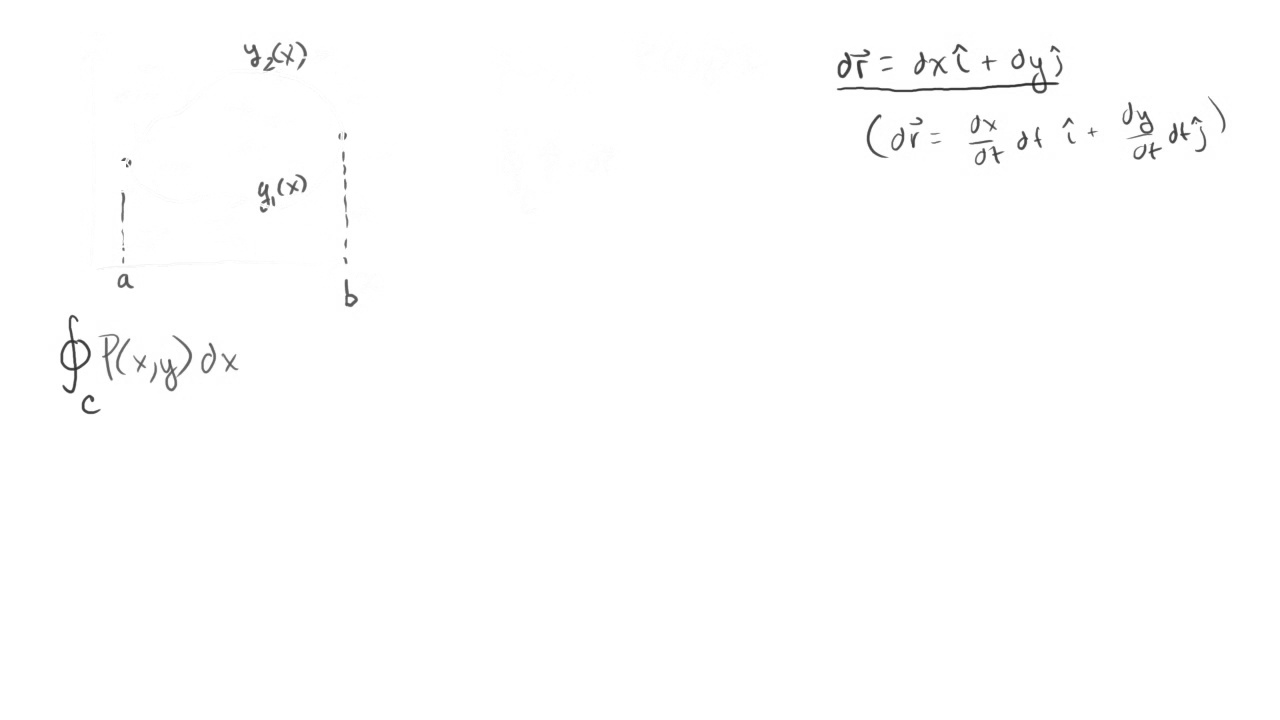 y₂(x)
y₁(x)
a
b
∮_C P(x,y) dx
d\vec{r} = dx î + dy ĵ
(d\vec{r} = dx/dt dt î + dy/dt dt ĵ)